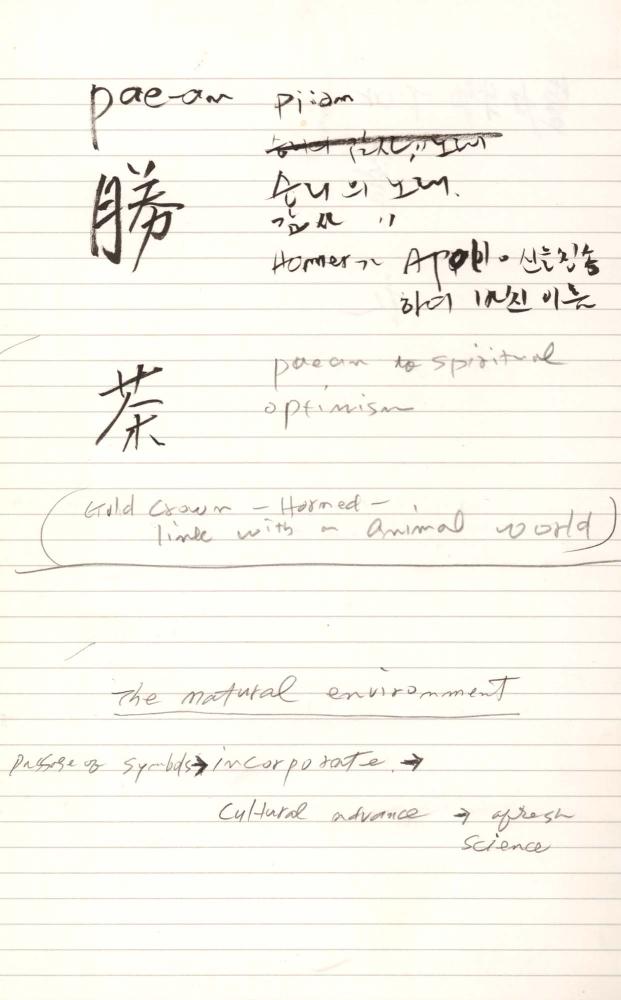 pae-an piian
승리의 노래.
감사 〃
Homer가 Apollo 신을 찬송
하여 비친 이름
勝
茶
paean to spiritual
optimism
Gold crown - Horned -
link with an animal world
The natural environment
passage of symbols→incorporate →
Cultural advance → afresh
science